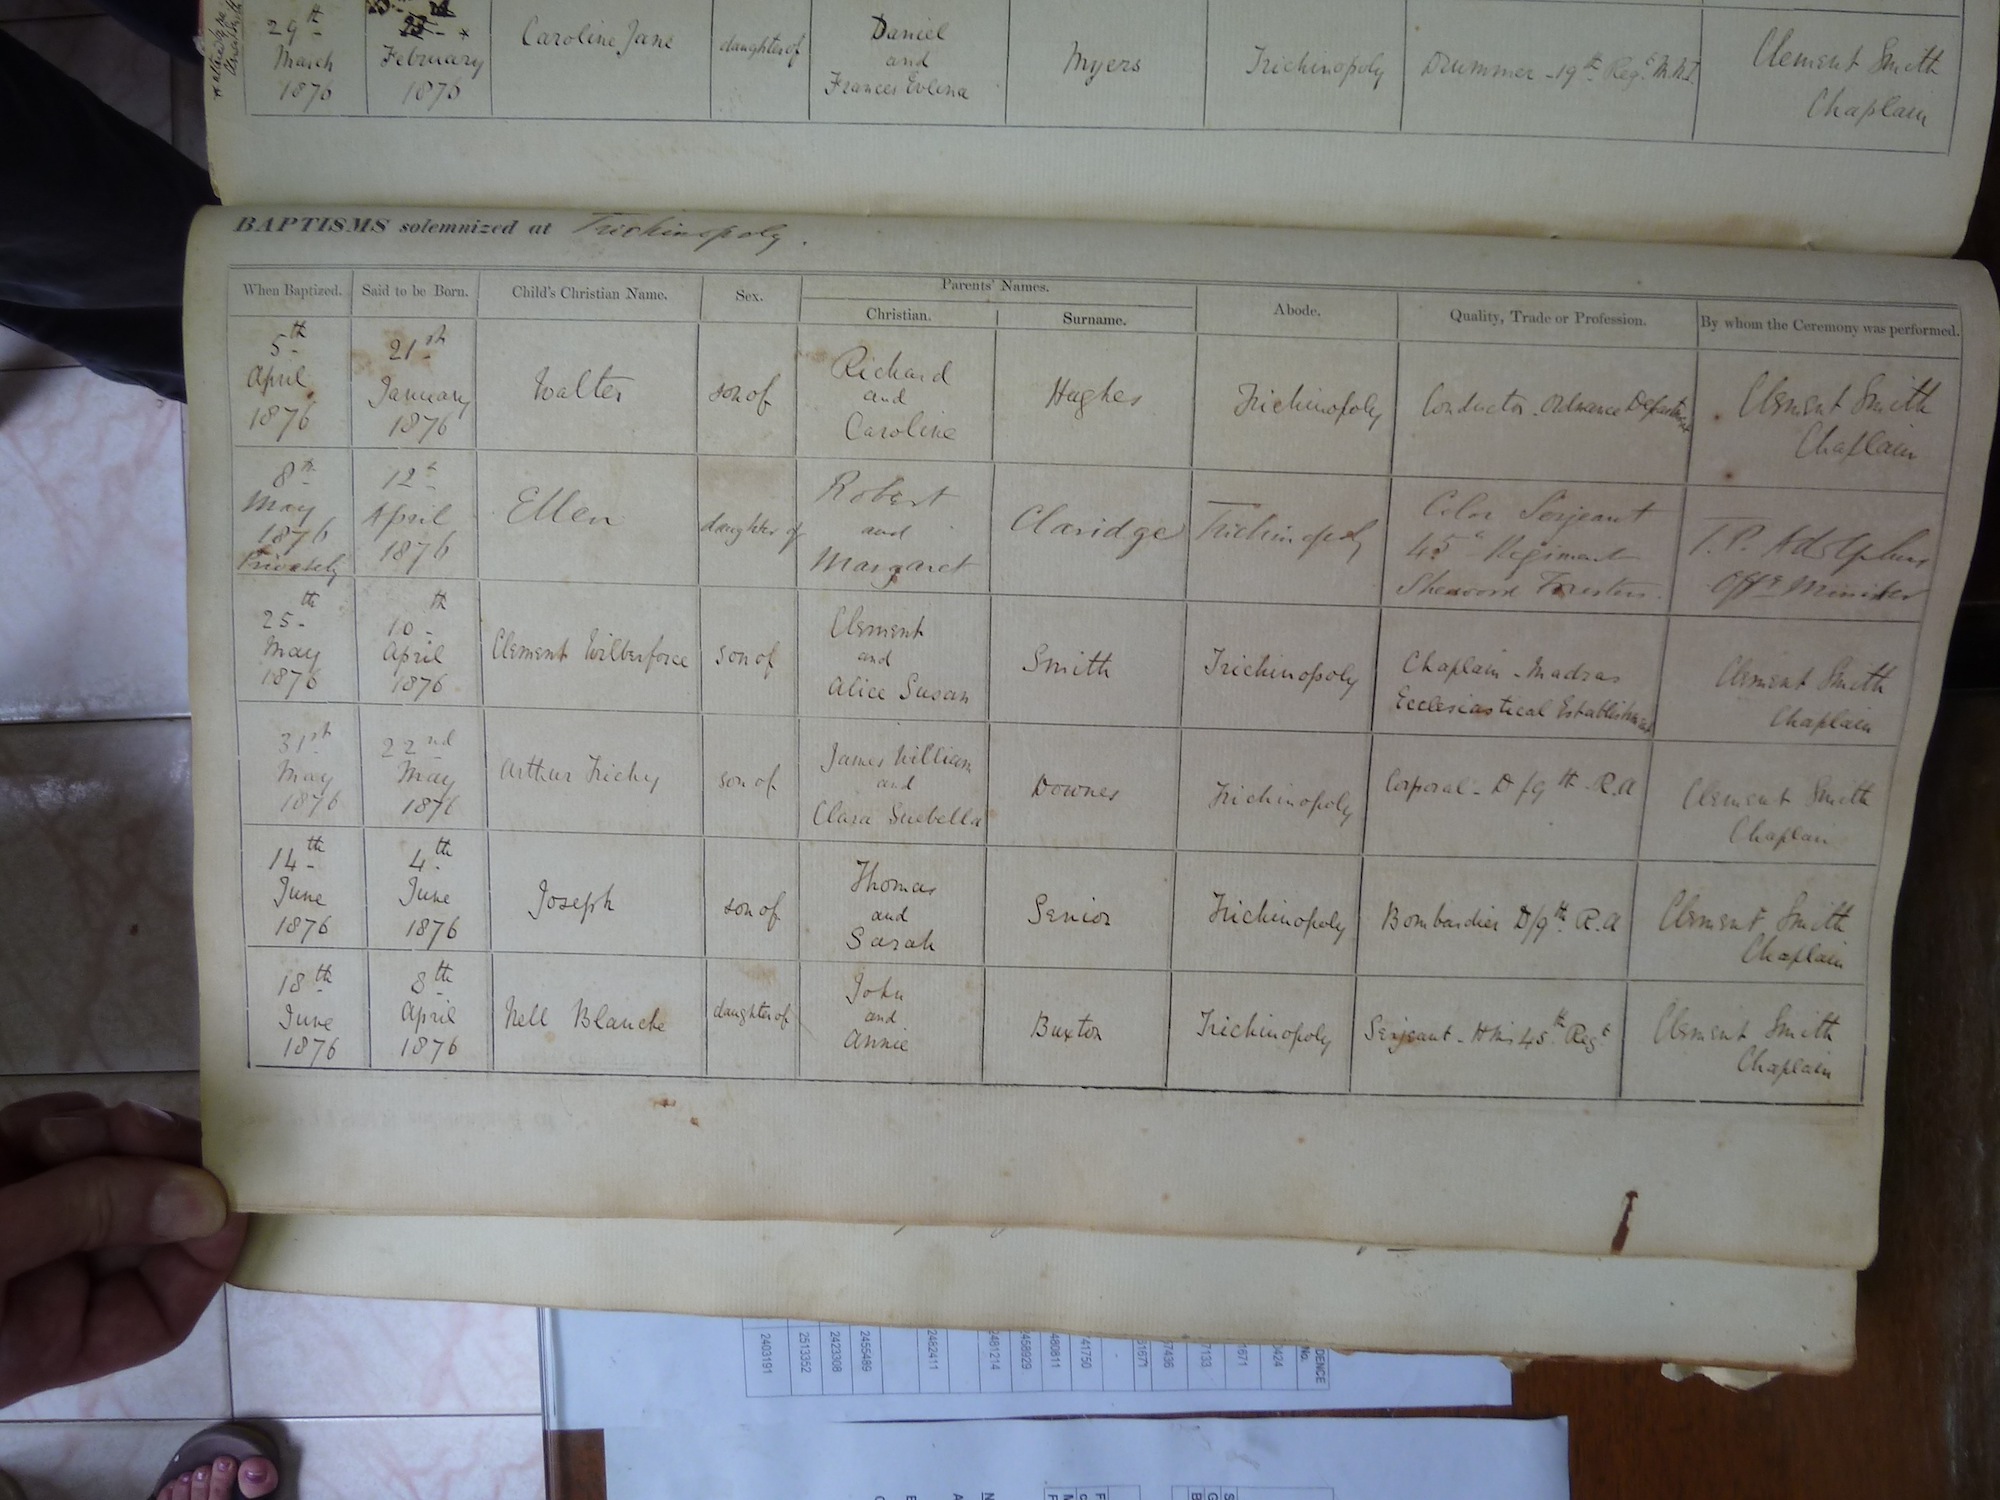 29th March 1876
February 1876
Caroline Jane
daughter of
Daniel and Frances Evelina
Myers
Trichinopoly
Drummer - 19th Regt M.N.I.
Clement Smith Chaplain
BAPTISMS solemnized at Trichinopoly.
When Baptized.
Said to be Born.
Child's Christian Name.
Sex.
Parents' Names.
Christian.
Surname.
Abode.
Quality, Trade or Profession.
By whom the Ceremony was performed.
5th April 1876
21st January 1876
Walter
son of
Richard and Caroline
Hughes
Trichinopoly
Conductor - Ordnance Department
Clement Smith Chaplain
8th May 1876 Privately
12th April 1876
Ellen
daughter of
Robert and Margaret
Claridge
Trichinopoly
Color Serjeant 45th Regiment Sherwood Foresters.
T. P. Adolphus Offg Minister
25th May 1876
10th April 1876
Clement Wilberforce
son of
Clement and Alice Susan
Smith
Trichinopoly
Chaplain - Madras Ecclesiastical Establishment
Clement Smith Chaplain
31st May 1876
22nd May 1876
Arthur Trichy
son of
James William and Clara Suebella
Downes
Trichinopoly
Corporal - D/9th - R.A
Clement Smith Chaplain
14th June 1876
4th June 1876
Joseph
son of
Thomas and Sarah
Senior
Trichinopoly
Bombardier D/9th R.A
Clement Smith Chaplain
18th June 1876
8th April 1876
Nell Blanche
daughter of
John and Annie
Buxton
Trichinopoly
Serjeant - HMs 45th Regt
Clement Smith Chaplain
2403191
2513352
2423308
2455489
2482411
2481214
2458929
480811
41750